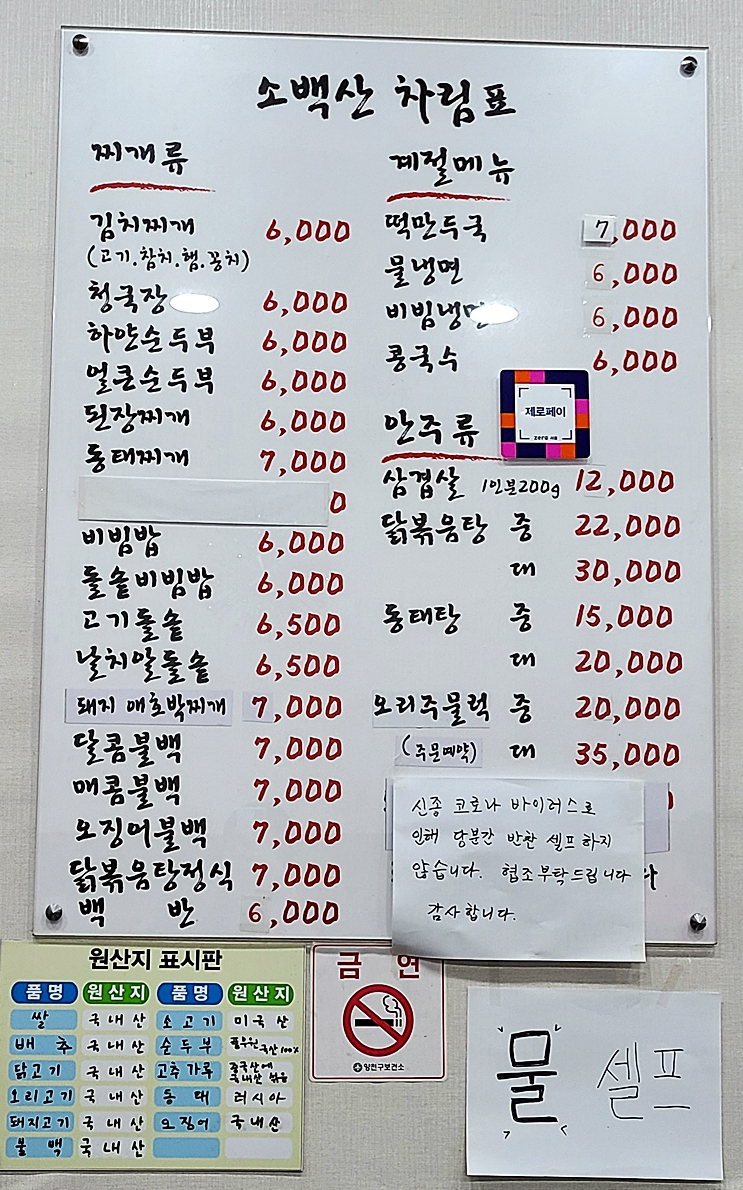 소백산 차림표
찌개류
김치찌개 6,000
(고기.참치.햄.꽁치)
청국장 6,000
하얀순두부 6,000
얼큰순두부 6,000
된장찌개 6,000
동태찌개 7,000
0
비빔밥 6,000
돌솥비빔밥 6,000
고기돌솥 6,500
날치알돌솥 6,500
돼지 애호박찌개 7,000
달콤불백 7,000
매콤불백 7,000
오징어불백 7,000
닭볶음탕정식 7,000
백 반 6,000
계절메뉴
떡만두국 7,000
물냉면 6,000
비빔냉면 6,000
콩국수 6,000
제로페이
zero 서울
안주류
삼겹살 1인분200g 12,000
닭볶음탕 중 22,000
대 30,000
동태탕 중 15,000
대 20,000
오리주물럭 중 20,000
(주문예약) 대 35,000
신종 코로나 바이러스로
인해 당분간 반찬 셀프하지
않습니다. 협조부탁드립니다
감사합니다.
원산지 표시판
품명 원산지 품명 원산지
쌀 국내산 소고기 미국산
배추 국내산 순두부 풀무원 국산100%
닭고기 국내산 고추가루 중국산에 국내산 섞음
오리고기 국내산 동태 러시아
돼지고기 국내산 오징어 국내산
불백 국내산
금연
양천구보건소
물 셀프